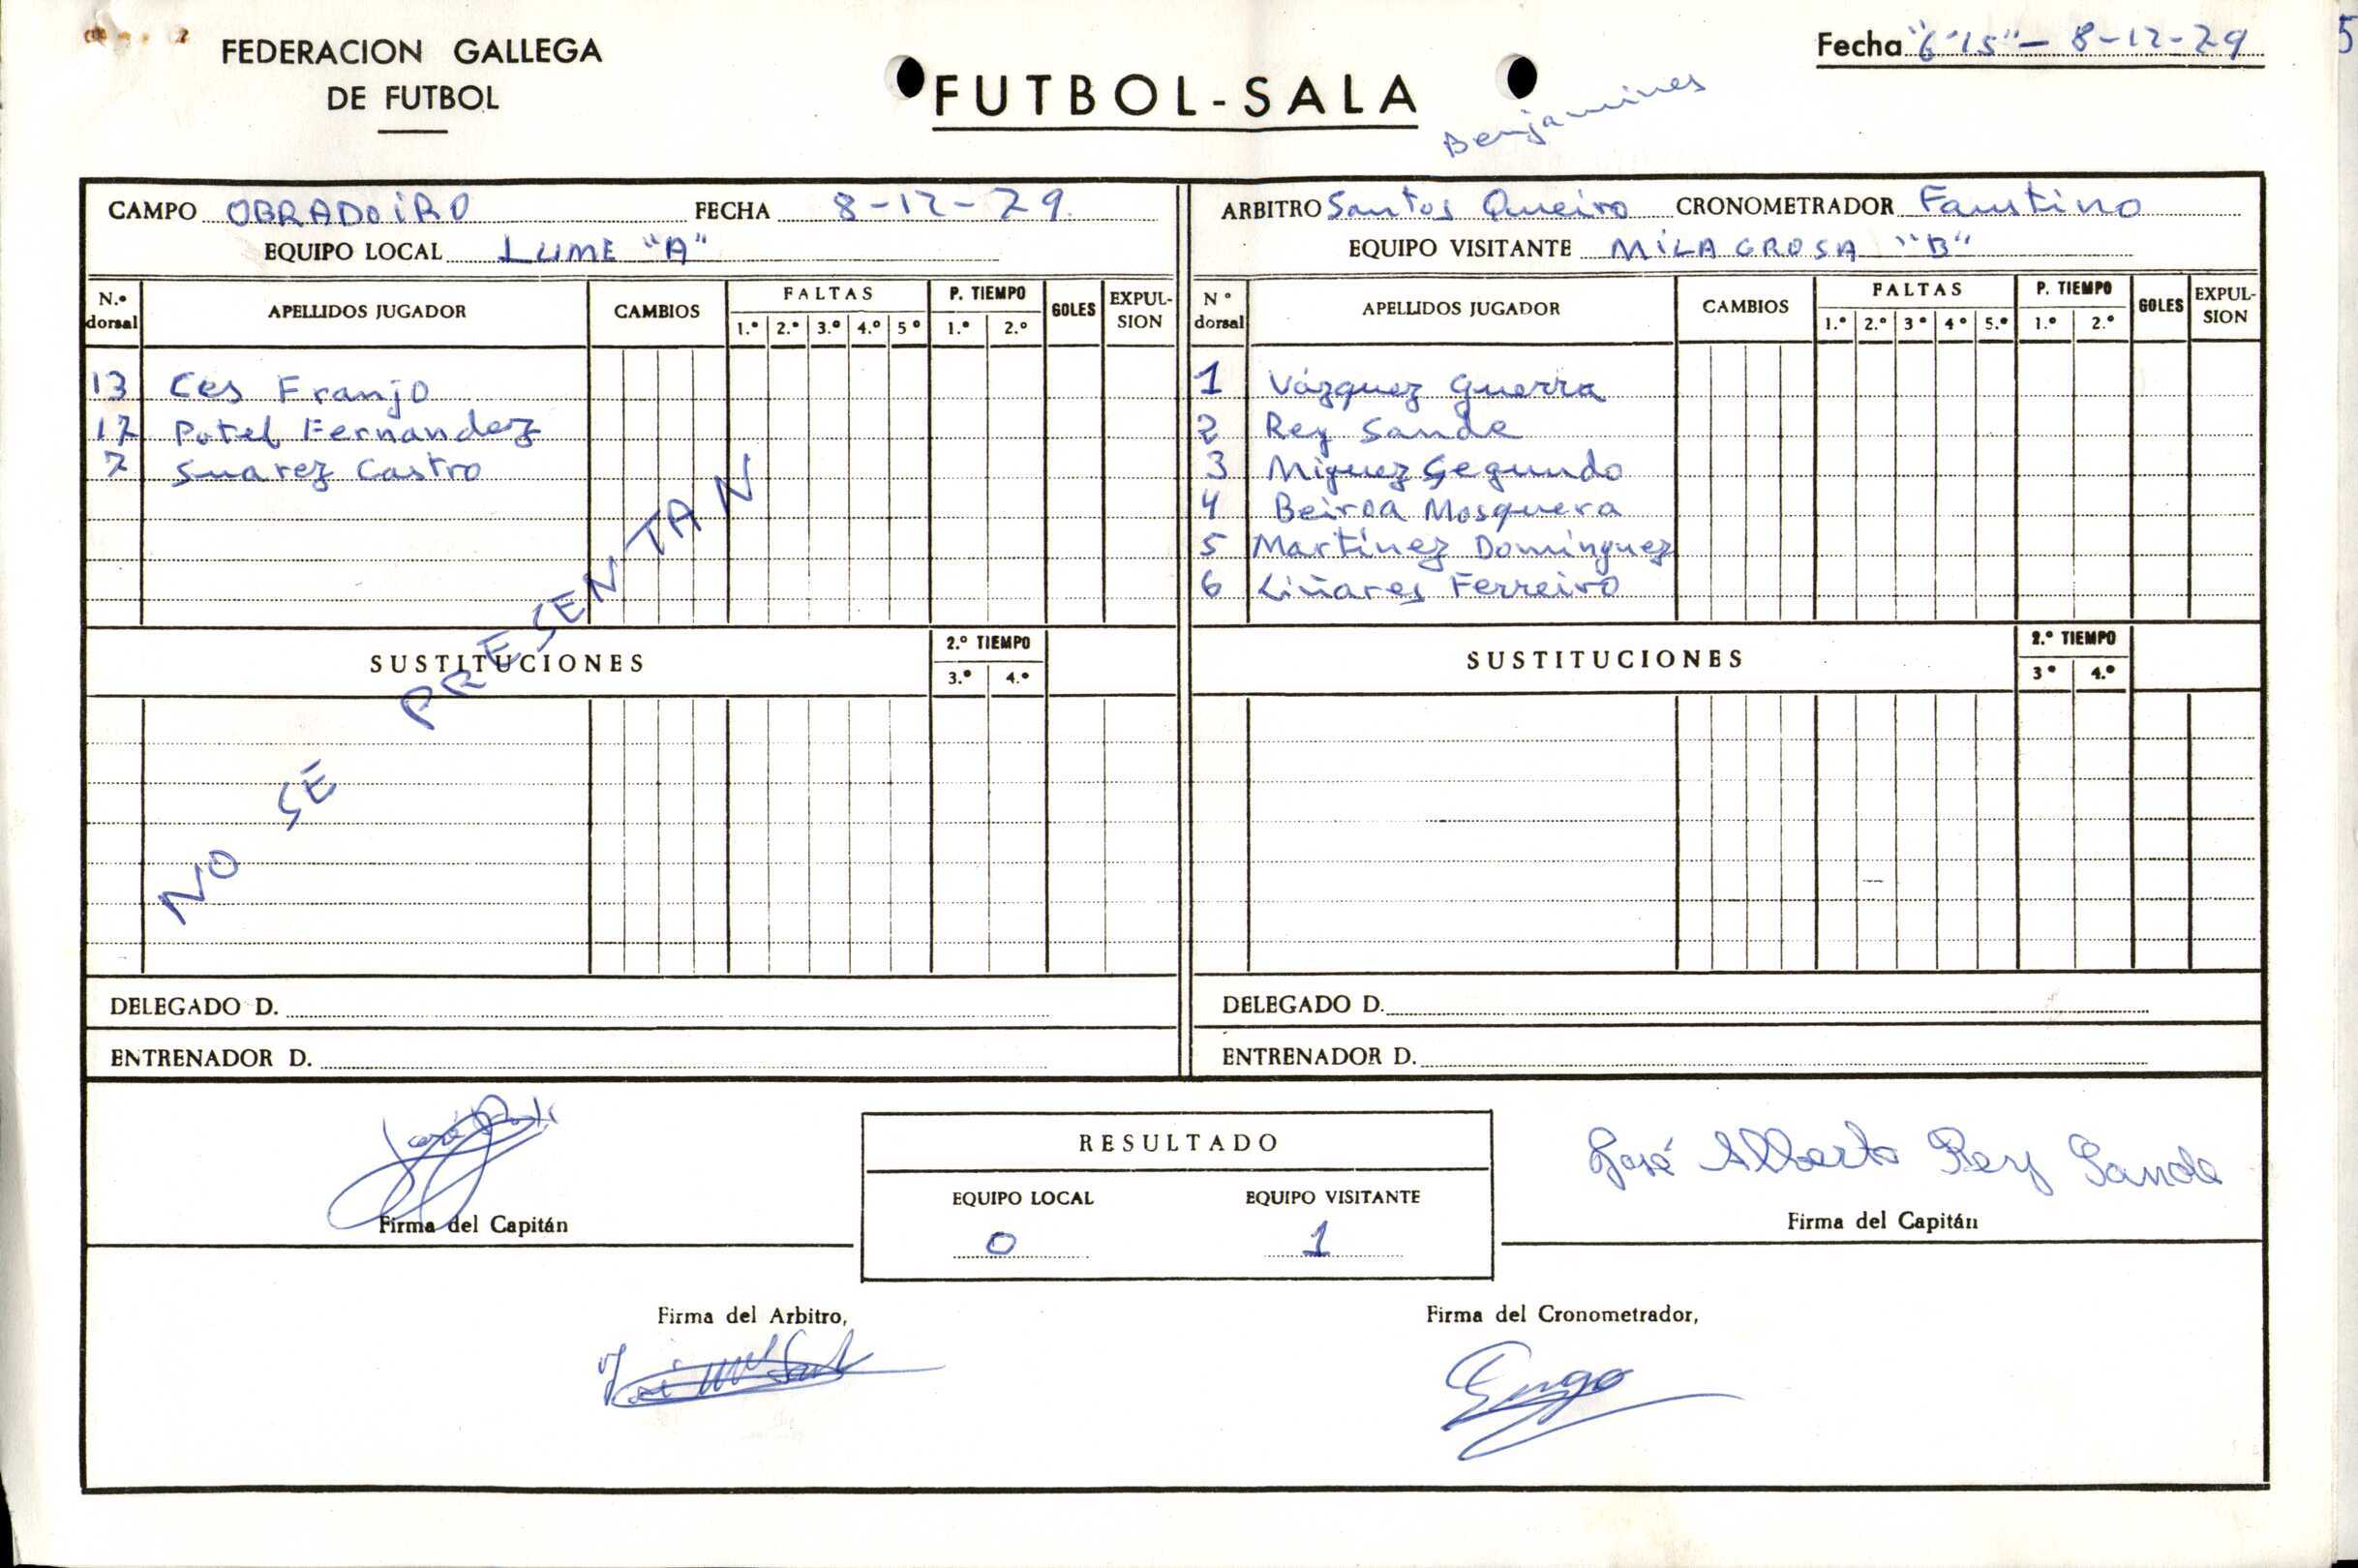 FEDERACION GALLEGA
DE FUTBOL
FUTBOL-SALA
Benjamines
Fecha "6'15"- 8-12-79
5
CAMPO OBRADOIRO FECHA 8-12-79
EQUIPO LOCAL LUME "A"
ARBITRO Santos Queiro CRONOMETRADOR Faustino
EQUIPO VISITANTE MILAGROSA "B"
N.º dorsal APELLIDOS JUGADOR CAMBIOS FALTAS 1.º 2.º 3.º 4.º 5º P. TIEMPO 1.º 2.º GOLES EXPUL-SION
13 Ces Franjo
17 Potel Fernandez
7 Suarez Castro
NO SE PRESENTAN
SUSTITUCIONES 2.º TIEMPO 3.º 4.º
DELEGADO D.
ENTRENADOR D.
Nº dorsal APELLIDOS JUGADOR CAMBIOS FALTAS 1.º 2.º 3º 4º 5.º P. TIEMPO 1.º 2.º GOLES EXPUL-SION
1 Vázquez Guerra
2 Rey Sande
3 Miguez Segundo
4 Beiroa Mosquera
5 Martínez Domínguez
6 Liñares Ferreiro
SUSTITUCIONES 2.º TIEMPO 3º 4.º
DELEGADO D.
ENTRENADOR D.
Firma del Capitán
RESULTADO
EQUIPO LOCAL EQUIPO VISITANTE
0 1
José Alberto Rey Sande
Firma del Capitán
Firma del Arbitro,
Firma del Cronometrador,